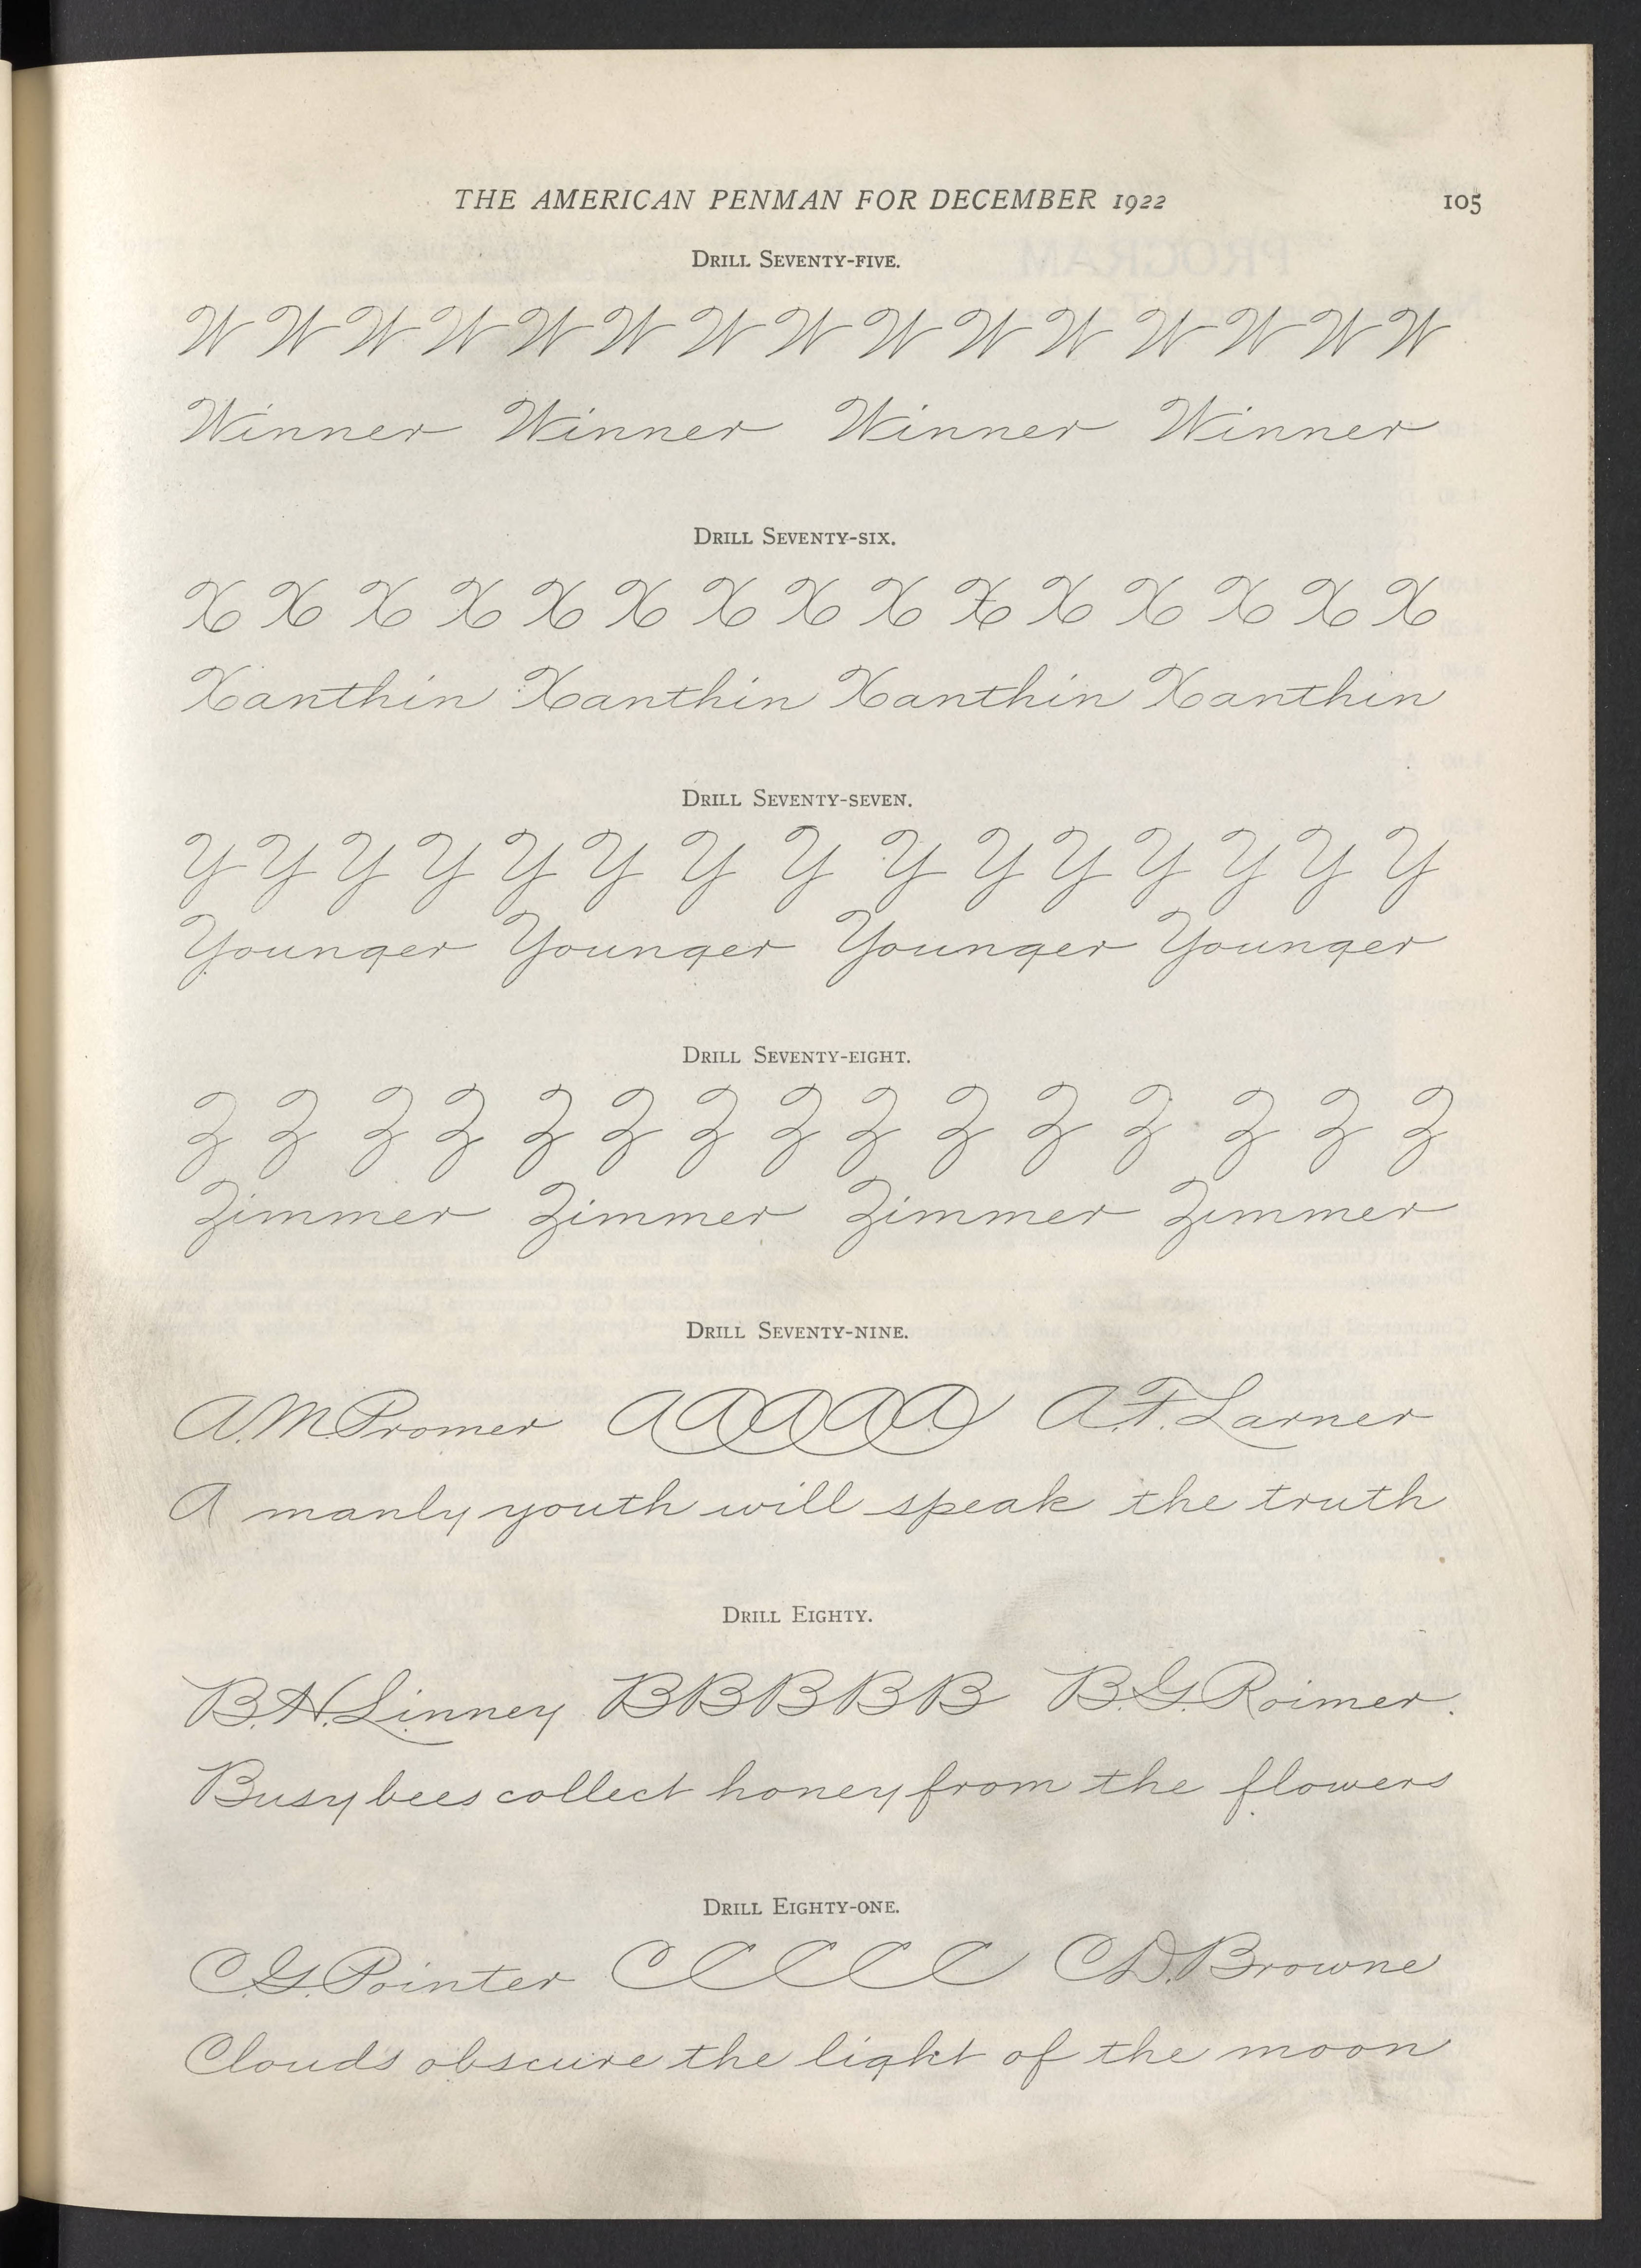 THE AMERICAN PENMAN FOR DECEMBER 1922 105
DRILL SEVENTY-FIVE.
W W W W W W W W W W W W W W W
Winner Winner Winner Winner
DRILL SEVENTY-SIX.
X X X X X X X X X X X X X X X
Xanthin Xanthin Xanthin Xanthin
DRILL SEVENTY-SEVEN.
Y Y Y Y Y Y Y Y Y Y Y Y Y Y Y
Younger Younger Younger Younger
DRILL SEVENTY-EIGHT.
Z Z Z Z Z Z Z Z Z Z Z Z Z Z Z
Zimmer Zimmer Zimmer Zimmer
DRILL SEVENTY-NINE.
A.M.Promer A A A A A A.F.Larner
A manly youth will speak the truth
DRILL EIGHTY.
B.H.Linney B B B B B B.G.Roimer.
Busy bees collect honey from the flowers
DRILL EIGHTY-ONE.
C.G.Pointer C C C C C C.D.Browne
Clouds obscure the light of the moon